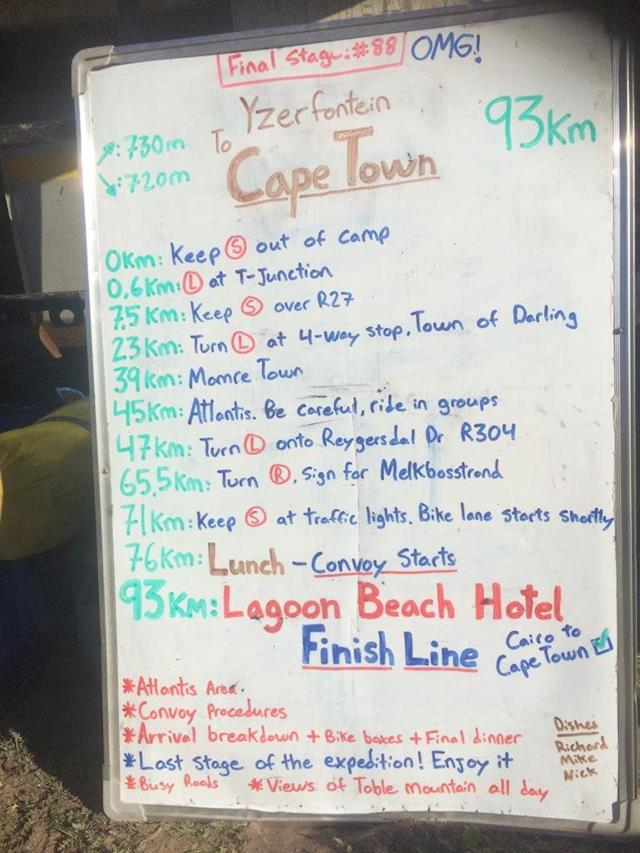 Final Stage: #88 OMG!
Yzerfontein
To
Cape Town
93Km
↗: 730m
↘: 720m
0km: Keep Ⓢ out of camp
0,6Km: Ⓛ at T-Junction
7,5Km: Keep Ⓢ over R27
23Km: Turn Ⓛ at 4-way stop. Town of Darling
39Km: Mamre Town
45Km: Atlantis. Be careful, ride in groups
47Km: Turn Ⓛ onto Reygersdal Dr R304
65,5Km: Turn Ⓡ. Sign for Melkbosstrand
71Km: Keep Ⓢ at traffic lights. Bike lane starts shortly
76Km: Lunch - Convoy Starts
93Km: Lagoon Beach Hotel
Finish Line
Cairo to
Cape Town ☑
*Atlantis Area.
*Convoy Procedures
*Arrival breakdown + Bike boxes + Final dinner
*Last stage of the expedition! Enjoy it
*Busy Roads *Views of Table mountain all day
Dishes
Richard
Mike
Nick